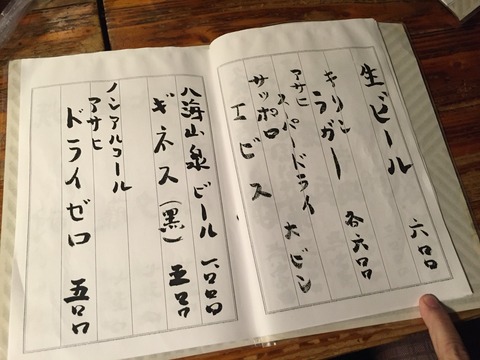 生ビール 六〇〇
キリン
ラガー 各六〇〇
アサヒ
スーパードライ 大ビン
サッポロ
エビス
八海山泉ビール 一〇〇〇
ギネス(黒) 五〇〇
ノンアルコール
アサヒ
ドライゼロ 五〇〇